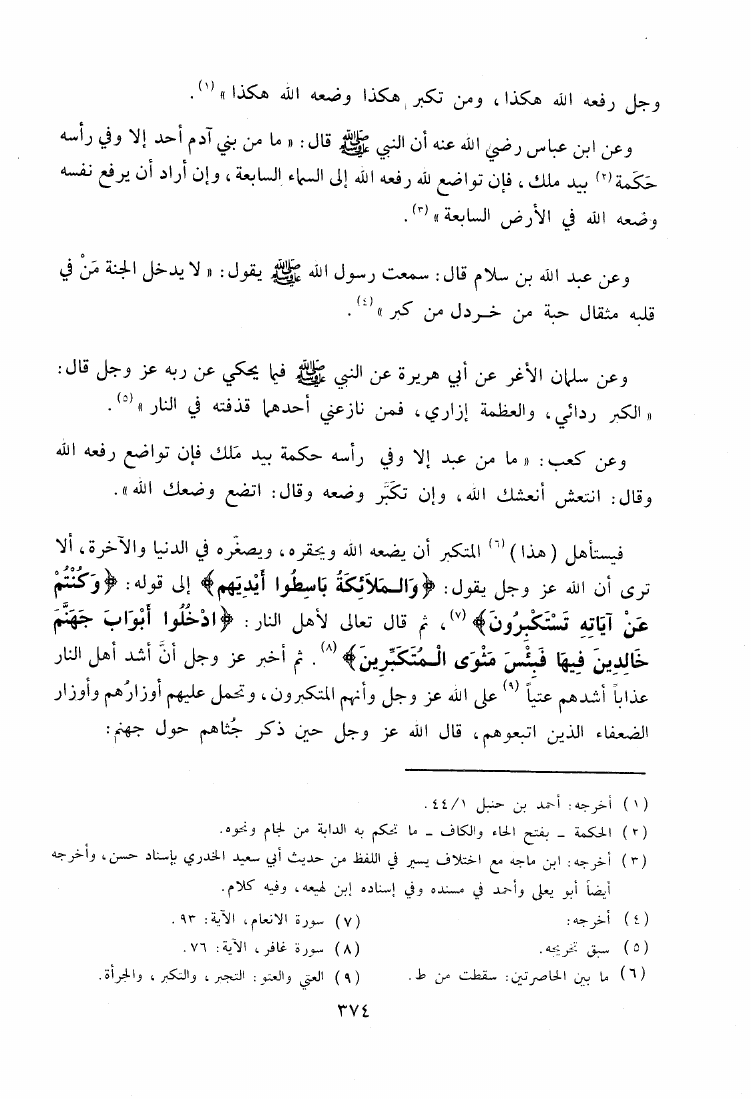 وجل رفعه الله هكذا، ومن تكبر هكذا وضعه الله هكذا »(١).
وعن ابن عباس رضي الله عنه أن النبي ﷺ قال: « ما من بني آدم أحد إلا وفي رأسه
حَكَمة(٢) بيد ملك، فإن تواضع لله رفعه الله إلى السماء السابعة، وإن أراد أن يرفع نفسه
وضعه الله في الأرض السابعة »(٣).
وعن عبد الله بن سلام قال: سمعت رسول الله ﷺ يقول: « لا يدخل الجنة مَنْ في
قلبه مثقال حبة من خردل من كبر »(٤).
وعن سلمان الأغر عن أبي هريرة عن النبي ﷺ فيما يحكي عن ربه عز وجل قال:
« الكبر ردائي، والعظمة إزاري، فمن نازعني أحدهما قذفته في النار »(٥).
وعن كعب: « ما من عبد إلا وفي رأسه حكمة بيد مَلك فإن تواضع رفعه الله
وقال: انتعش أنعشك الله، وإن تكبَّر وضعه وقال: اتضع وضعك الله».
فيستأهل (هذا)(٦) المتكبر أن يضعه الله ويحقره، ويصغّره في الدنيا والآخرة، ألا
ترى أن الله عز وجل يقول: ﴿وَالـمَلَائِكَةُ بَاسِطُوا أَيْدِيَهِم﴾ إلى قوله: ﴿وَكُنْتُمْ
عَنْ آيَاتِه تَسْتَكْبِرُونَ﴾(٧)، ثم قال تعالى لأهل النار: ﴿ادْخُلُوا أَبْوَابَ جَهَنَّمَ
خَالِدِينَ فِيهَا فَبِئْسَ مَثْوَى الـمُتَكَبِّرِينَ﴾(٨). ثم أخبر عز وجل أنَّ أشد أهل النار
عذاباً أشدهم عتياً(٩) على الله عز وجل وأنهم المتكبرون، وتحمل عليهم أوزارُهم وأوزار
الضعفاء الذين اتبعوهم، قال الله عز وجل حين ذكر جُثاهم حول جهنم:
(١) أخرجه: أحمد بن حنبل ٤٤/١.
(٢) الحكمة ـ بفتح الحاء والكاف ـ ما تحكم به الدابة من لجام ونحوه.
(٣) أخرجه: ابن ماجه مع اختلاف يسير في اللفظ من حديث أبي سعيد الخدري بإسناد حسن، وأخرجه
أيضاً أبو يعلى وأحمد في مسنده وفي إسناده إبن لهيعه، وفيه كلام.
(٤) أخرجه:
(٥) سبق تخريجه.
(٦) ما بين الحاصرتين: سقطت من ط.
(٧) سورة الانعام، الآية: ٩٣.
(٨) سورة غافر، الآية: ٧٦.
(٩) العتي والعتو: التجبر، والتكبر، والجرأة.
٣٧٤